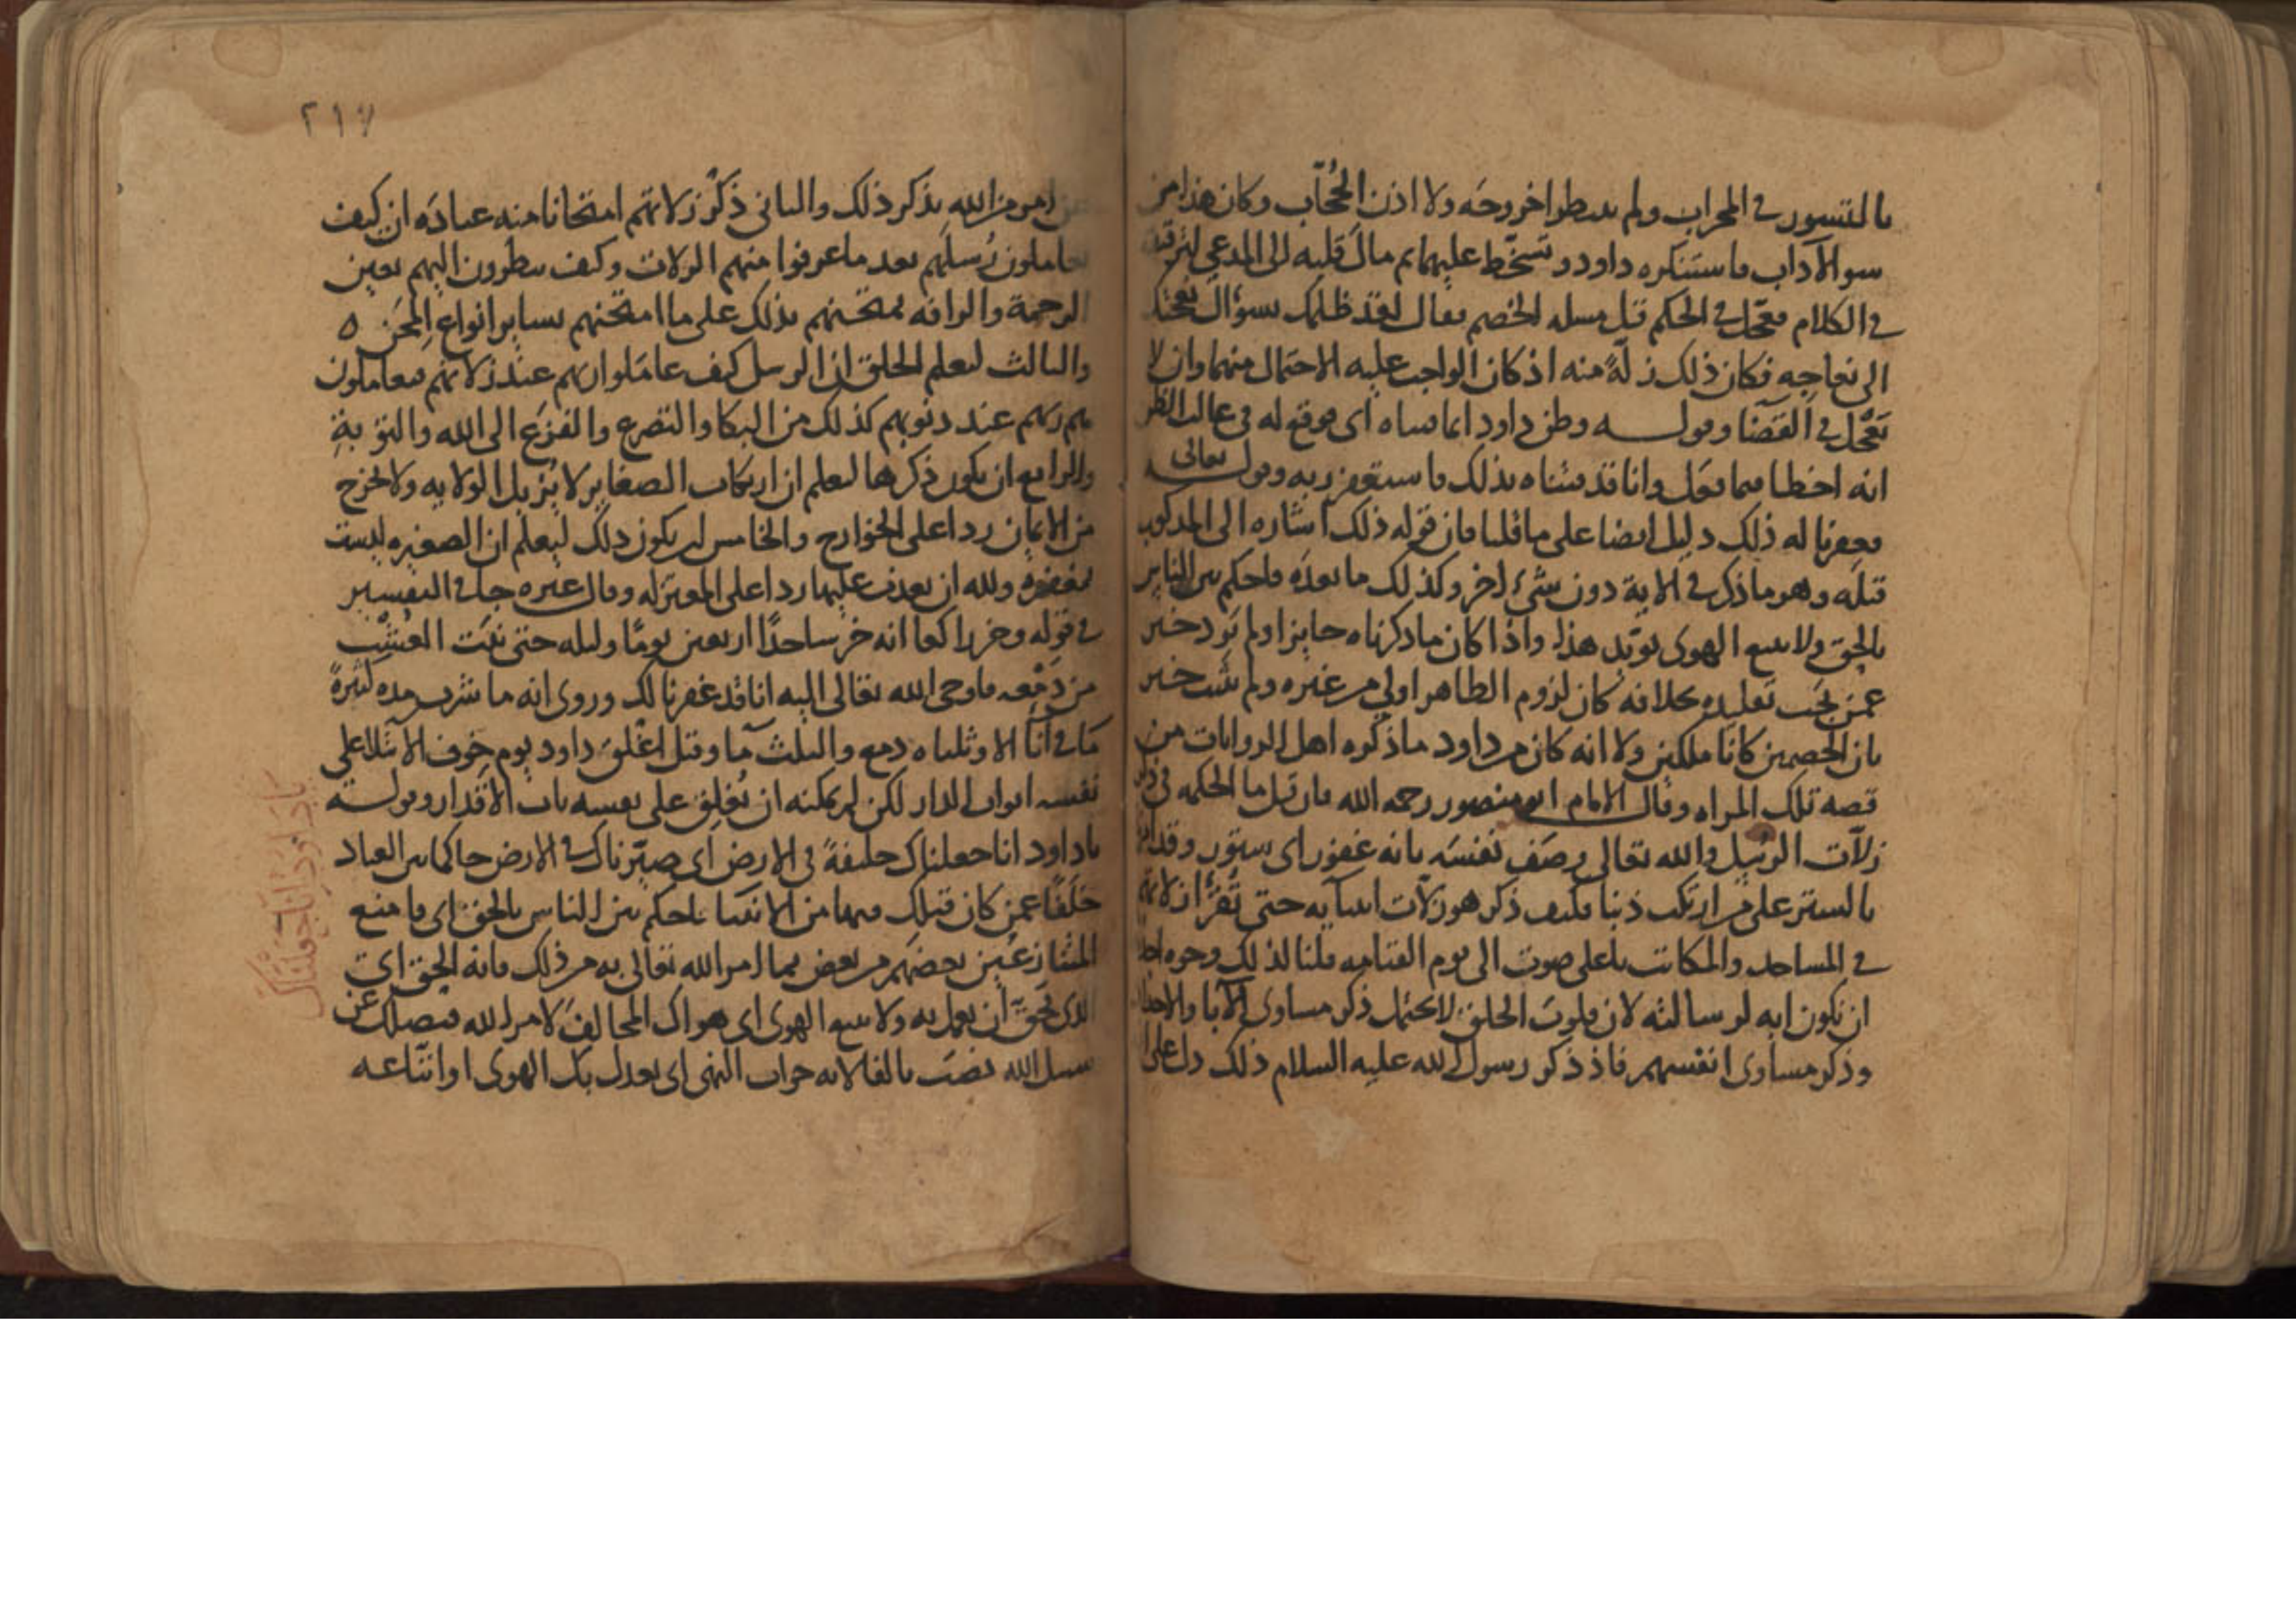 بالتسور في المحراب ولم ينتظرا خروجه ولا اذن الحُجّاب وكان هذا من
سو الآداب فاستنكره داود وتسخّط عليهما ثم مال قلبه الى المدعي لترقيقه
في الكلام فعجّل في الحكم قبل مسله الخصم فقال لقد ظلمك بسؤال نعجتك
الى نعاجه فكان ذلك زلّةً منه اذ كان الواجب عليه الاحتمال منهما وان لا
يعجّل في القضا وقوله وظن داود انما فتناه اى فوقع له في غالب الظن
انه اخطا فيما فعل وانا قد فتناه بذلك فاستغفر ربه وقوله تعالى
فغفرنا له ذلك دليل ايضا على ما قلنا فان قوله ذلك اشاره الى المذكور
قبله وهو ما ذكر في الاية دون شيء اخر وكذلك ما بعده فاحكم بين الناس
بالحق ولا تتبع الهوى يويّد هذا واذا كان ما ذكرناه جايزا ولم يَرد خبر
عمن يجب تقليده بخلافه كان لزوم الظاهر اولى من غيره ولم يثبت خبر
بان الخصمين كانا ملكين ولا انه كان من داود ما ذكره اهل الروايات من
قصه تلك المراه وقال الامام ابو منصور رحمه الله فان قيل ما الحكمه في ذكر
زلّات الرسل والله تعالى وصف نفسَه بانه غفور اى ستور وقد امر
بالستر على من ارتكب ذنبا فكيف ذكر هو زلّات انبيآيه حتى تُقرأ زلاتهم
في المساجد والمكاتب باعلى صوت الى يوم القيامه قلنا لذلك وجوه احدها
ان تكون ايه لرسالته لان قلوب الخلق لا تحتمل ذكر مساوى الآبا والاجداد
وذكر مساوى انفسهم فاذ ذكر رسول الله عليه السلام ذلك دل على
٢١٧
امر من الله بذكر ذلك والثاني ذَكَر زلاتهم امتحانا منه عبادَه ان كيف
يعاملون رُسلَهم بعد ما عرفوا منهم الزلات وكيف ينظرون اليهم بعين
الرحمة والرافه يمتحنهم بذلك على ما امتحنهم بساير انواع المِحَن ٥
والثالث ليعلم الخلق ان الرسل كيف عامَلوا ربهم عند زلاتهم فيعاملون
هم ربهم عند ذنوبهم كذلك من البكا والتضرع والفزَع الى الله والتوبةِ
والرابع ان يكون ذكرها ليعلم ان ارتكاب الصغاير لا يُزيل الولايه ولا يخرج
من الايمان ردا على الخوارج والخامس ان يكون ذلك ليُعلَم ان الصغيره ليست
بمغفوره ولله ان يعذب عليها ردا على المعتزله وقال غيره جا في التفسير
في قوله وخر راكعا انه خر ساجدًا اربعين يومًا وليله حتى نبَت العُشْب
من دَمْعِه فاوحى الله تعالى اليه انا قد غفرنا لك وروى انه ما شرب مده كثيرةً
مَا في انآ الا وثلثاه دمع والثلث مآ وقيل اغْلقَ داود يوم خوف الابتلا على
نفسه ابواب الدار لكن لم يمكنه ان يُغلِق على نفسه باب الاقدار وقوله
ياداود انا جعلناك خليفةً في الارض اى صيّرناك في الارض حاكما بين العباد
خلَفًا عمن كان قبلك فيها من الانبيا فاحكم بين الناس بالحق اى فامنع
المتنازعين بعضهم من بعض بما امر الله تعالى به من ذلك فانه الحق اى
الذى يَحق ان يعمل به ولا تتبع الهوى اى هواك المخالف لامر الله فيضلك عن
سبيل الله نصَب بالفا لانه جواب النهى اى يعدل بك الهوى او اتّباعه
يادَاوُودُ اِنَّا جَعَلْنَاكَ